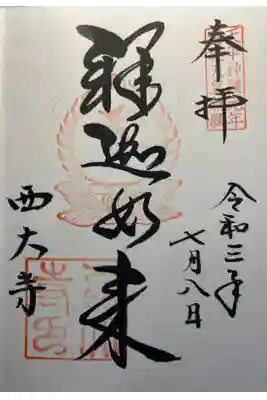 奉拝
令和三年
七月八日
釋迦如来
西大寺